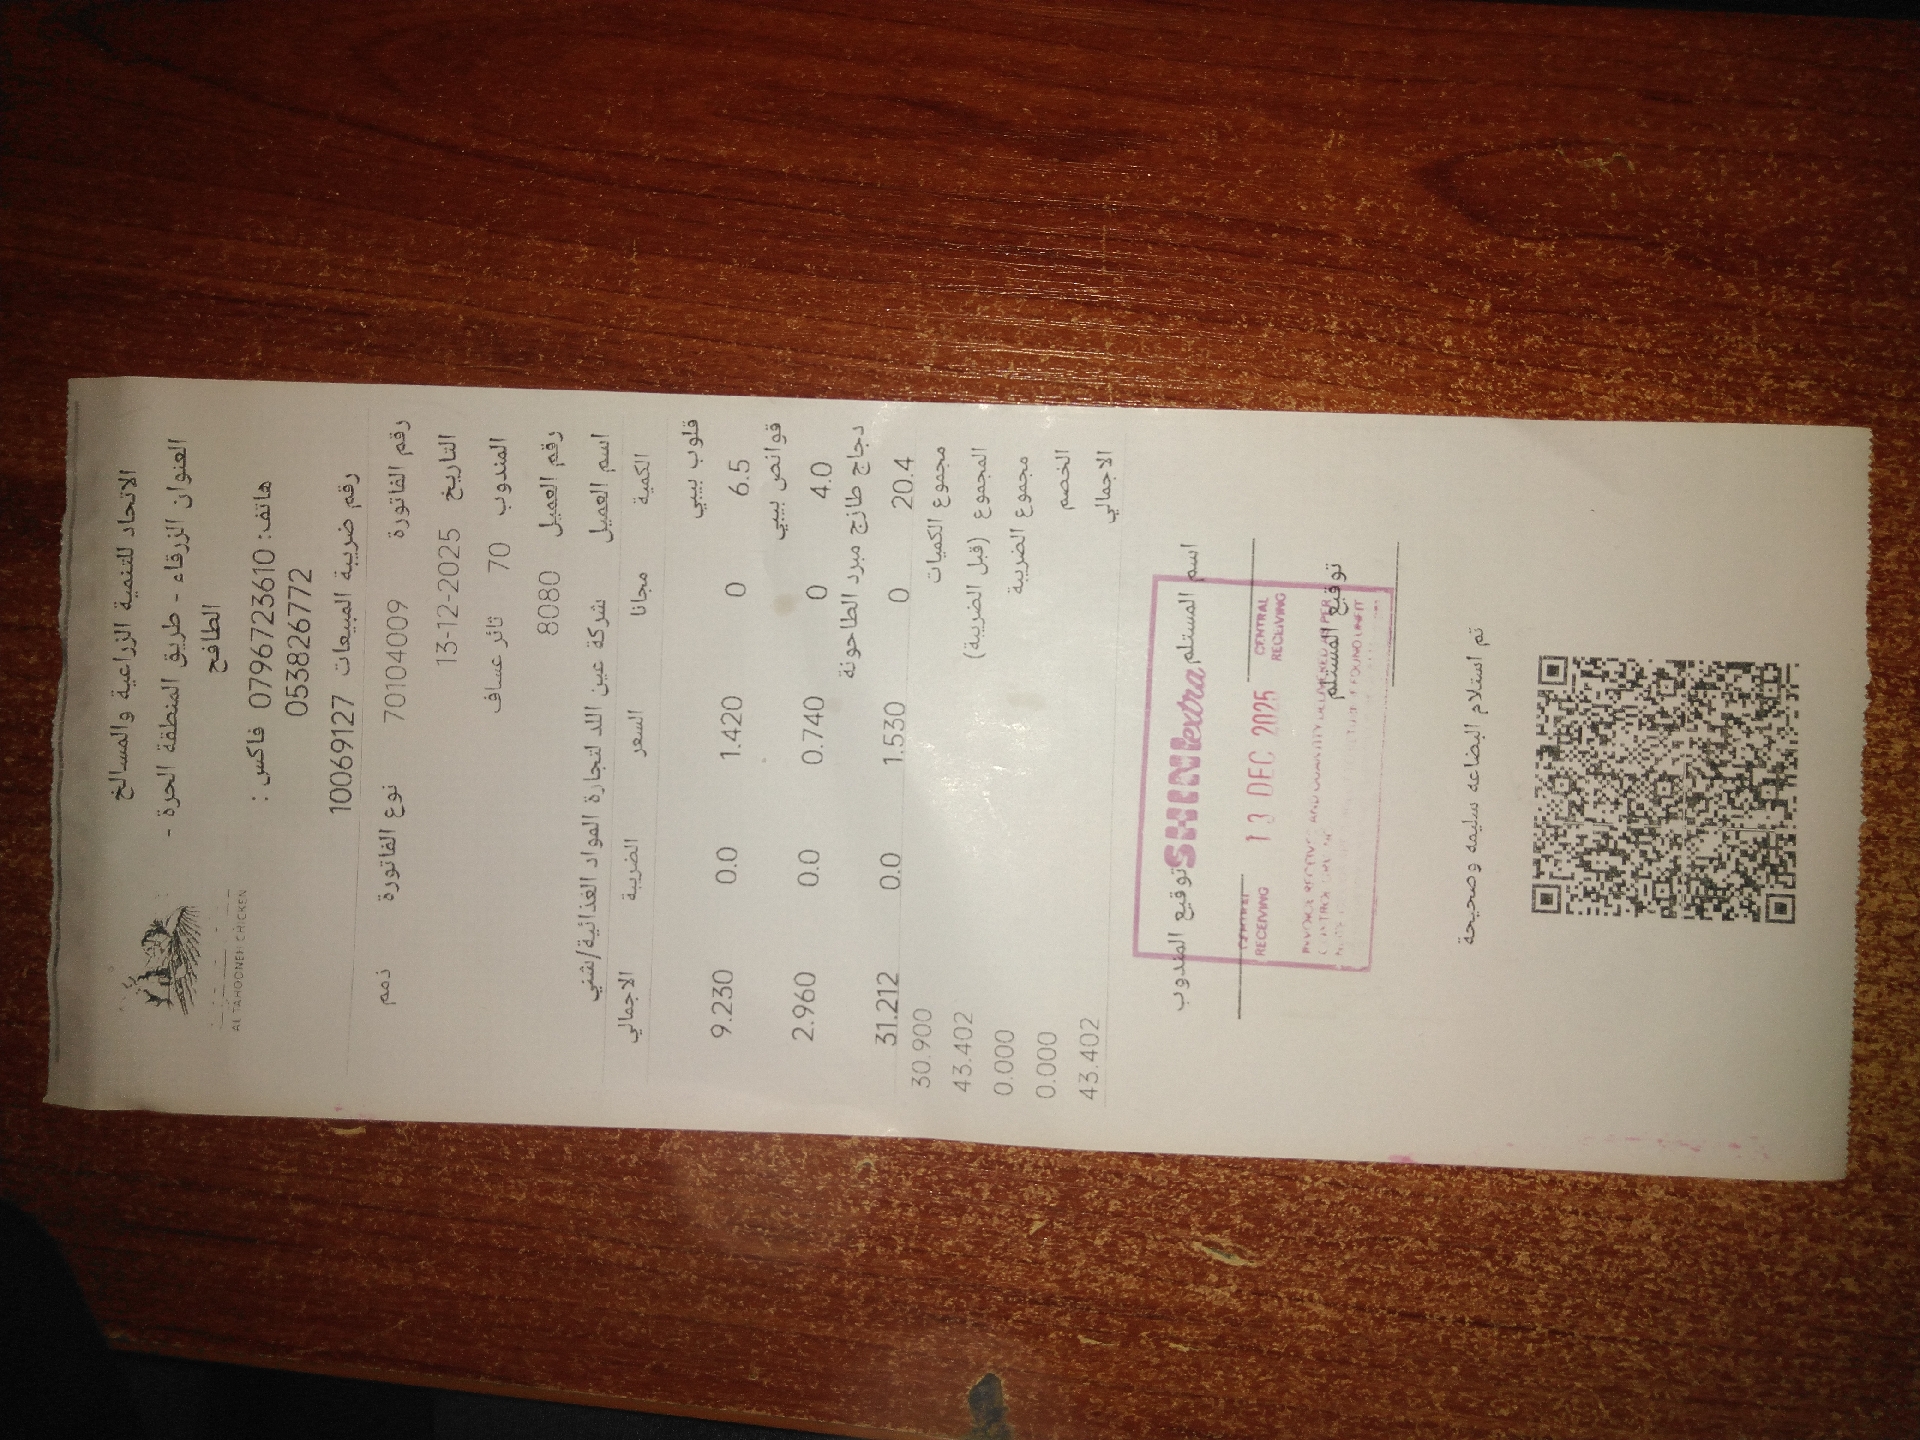 الاتحاد للتنمية الزراعية والمسالخ
العنوان الزرقاء - طريق المنطقة الحرة -
الطافح
هاتف: 0796723610 فاكس :
053826772
رقم ضريبة المبيعات 10069127
AL TAHOONEH CHICKEN
رقم الفاتورة 70104009 نوع الفاتورة ذمم
التاريخ 13-12-2025
المندوب 70 ثائر عساف
رقم العميل 8080
اسم العميل شركة عين اللد لتجارة المواد الغذائية/شني
الكمية مجانا السعر الضريبة الاجمالي
قلوب بيبي
6.5 0 1.420 0.0 9.230
قوانص بيبي
4.0 0 0.740 0.0 2.960
دجاج طازج مبرد الطاحونة
20.4 0 1.530 0.0 31.212
مجموع الكميات 30.900
المجموع (قبل الضريبة) 43.402
مجموع الضريبة 0.000
الخصم 0.000
الاجمالي 43.402
اسم المستلم توقيع المندوب
SHINI extra
CENTRAL RECEIVING
13 DEC 2025
RECEIVING
توقيع المستلم
تم استلام البضاعه سليمه وصحيحة